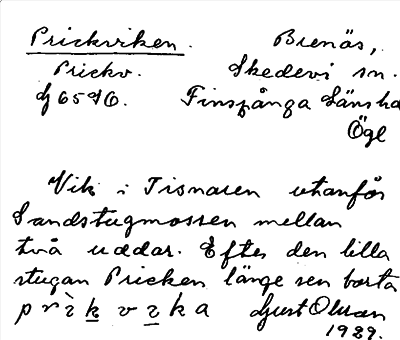 Prickviken. Brenäs,
Prickv. Skedevi sn.
Finspånga Länshä
Ögl
Vik i Tisnaren utanför
Sandstugmossen mellan
två uddar. Efter den lilla
stugan Pricken länge sen borta
prìkvika Gust Olsson
1929.